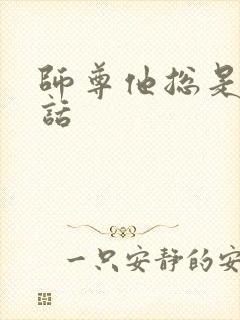 師尊他総是
話
一只安静的安